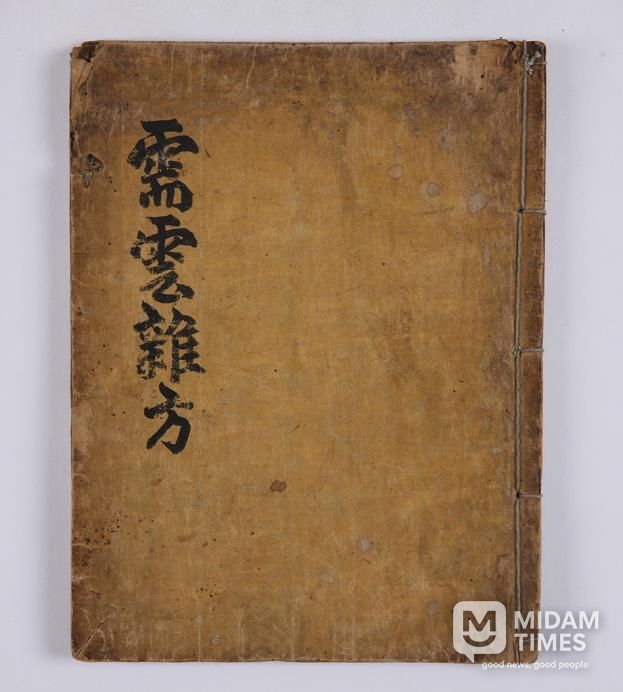 需雲雜方
MIDAM
TIMES
good news, good people